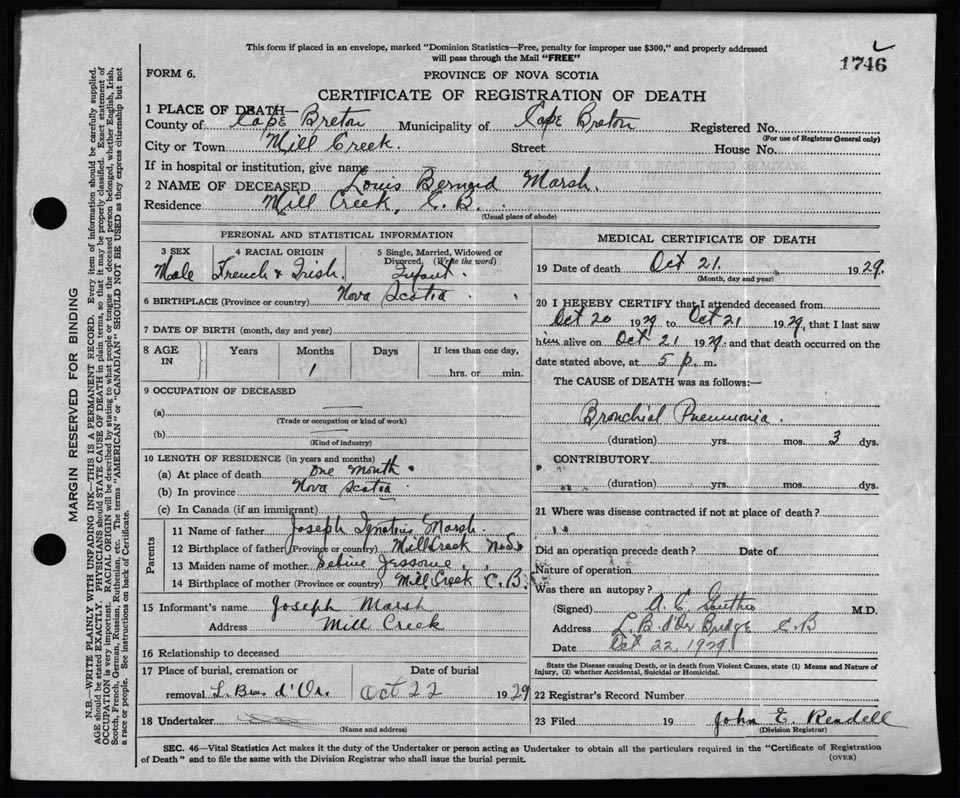 This form if placed in an envelope, marked "Dominion Statistics—Free, penalty for improper use $300," and properly addressed
will pass through the Mail "FREE"
1746
FORM 6.
PROVINCE OF NOVA SCOTIA
CERTIFICATE OF REGISTRATION OF DEATH
1 PLACE OF DEATH—
County of Cape Breton Municipality of Cape Breton Registered No.
(For use of Registrar General only)
City or Town Mill Creek. Street House No.
If in hospital or institution, give name
2 NAME OF DECEASED Louis Bernard Marsh.
Residence Mill Creek, C. B.
(Usual place of abode)
PERSONAL AND STATISTICAL INFORMATION
3 SEX 4 RACIAL ORIGIN 5 Single, Married, Widowed or
Divorced. (Write the word)
Male French & Irish. Infant.
6 BIRTHPLACE (Province or country) Nova Scotia
7 DATE OF BIRTH (month, day and year)
8 AGE IN Years Months Days If less than one day,
1 hrs. or min.
9 OCCUPATION OF DECEASED
(a)
(Trade or occupation or kind of work)
(b)
(Kind of industry)
10 LENGTH OF RESIDENCE (in years and months)
(a) At place of death One Month
(b) In province Nova Scotia
(c) In Canada (if an immigrant)
Parents
11 Name of father Joseph Ignatius Marsh.
12 Birthplace of father (Province or country) Mill Creek N.S.
13 Maiden name of mother Jessome
14 Birthplace of mother (Province or country) Mill Creek C. B.
15 Informant's name Joseph Marsh
Address Mill Creek
16 Relationship to deceased
17 Place of burial, cremation or Date of burial
removal L. Bras d'Or. Oct 22 1929
18 Undertaker
(Name and address)
MEDICAL CERTIFICATE OF DEATH
19 Date of death Oct 21. 1929.
(Month, day and year)
20 I HEREBY CERTIFY that I attended deceased from
Oct 20 1929 to Oct 21 1929, that I last saw
him alive on Oct 21 1929 and that death occurred on the
date stated above, at 5 p. m.
The CAUSE of DEATH was as follows:—
Bronchial Pneumonia.
(duration) yrs. mos. 3 dys.
CONTRIBUTORY
(duration) yrs. mos. dys.
21 Where was disease contracted if not at place of death?
Did an operation precede death? Date of
Nature of operation
Was there an autopsy?
(Signed) A. E. M.D.
Address L. B. d'Or Bridge C. B
Date Oct 22 1929
State the Disease causing Death, or in death from Violent Causes, state (1) Means and Nature of
Injury, (2) whether Accidental, Suicidal or Homicidal.
22 Registrar's Record Number
23 Filed 19 John E. Rendell
(Division Registrar)
SEC. 46—Vital Statistics Act makes it the duty of the Undertaker or person acting as Undertaker to obtain all the particulars required in the "Certificate of Registration
of Death" and to file the same with the Division Registrar who shall issue the burial permit.
(OVER)
MARGIN RESERVED FOR BINDING
N.B.—WRITE PLAINLY WITH UNFADING INK—THIS IS A PERMANENT RECORD. Every item of information should be carefully supplied.
AGE should be stated EXACTLY. PHYSICIANS should STATE CAUSE OF DEATH in plain terms, so that it may be properly classified. Exact statement of
OCCUPATION is very important. RACIAL ORIGIN will be described by stating to what people or tongue the deceased person belonged, whether English, Irish,
Scotch, French, German, Russian, Ruthenian, etc. The terms "AMERICAN" or "CANADIAN" SHOULD NOT BE USED as they express citizenship but not
a race or people. See instructions on back of Certificate.